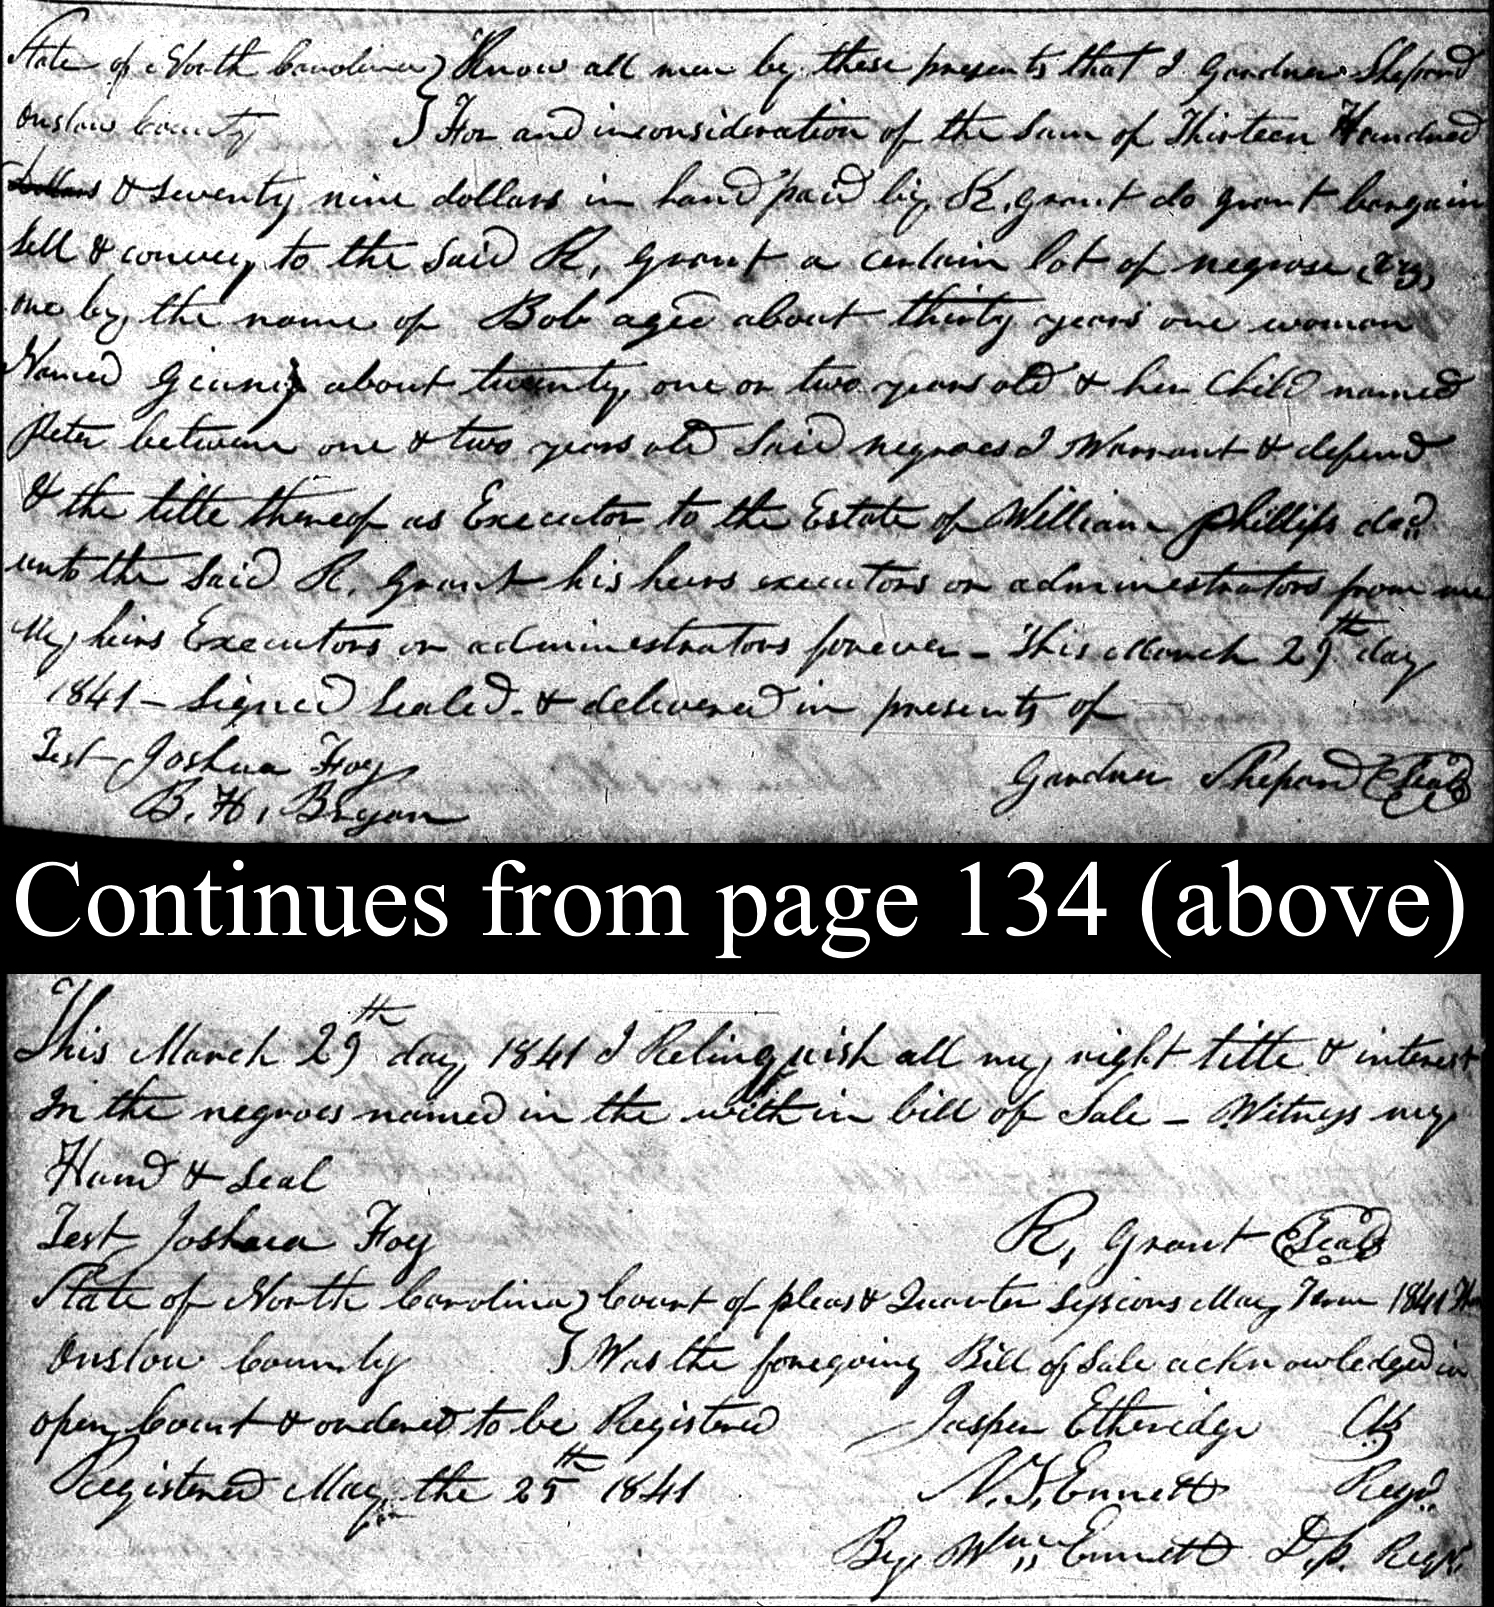 State of North Carolina } Know all men by these presents that I Gardner Shepard
Onslow County } For and inconsideration of the Sum of Thirteen Hundred
dollars & seventy nine dollars in hand paid by R, grant do grant bargain
sell & convey to the said R, grant a certain lot of negrose,
one by the name of Bob aged about thirty years one woman
Named about twenty one or two years old & her Child named
Peter between one & two years old Said negroes I Warrant & defend
& the title thereof as Executor to the Estate of William phillips dcd
unto the said R. Grant his heirs executors or administrators from me
My heirs Executors or administrators forever - This March 29th day
1841 - Signed Sealed & delivered in presents of
Test Joshua Foy Gardner Shepard (Seal)
B. H, Bryan
Continues from page 134 (above)
This March 29th day 1841 I Relinquish all my right title & interest
In the negroes named in the within bill of Sale - Witness my
Hand & Seal
Test Joshua Foy R, Grant (Seal)
State of North Carolina } Court of pleas & Quarter Sessions May Term 1841
Onslow County } Was the foregoing Bill of Sale acknowledged in
open Court & ordered to be Registered Jasper Etheridge Clk
Registered May the 25th 1841 N. T. Ennett Regr
By Wm Ennett D.p. Regr.